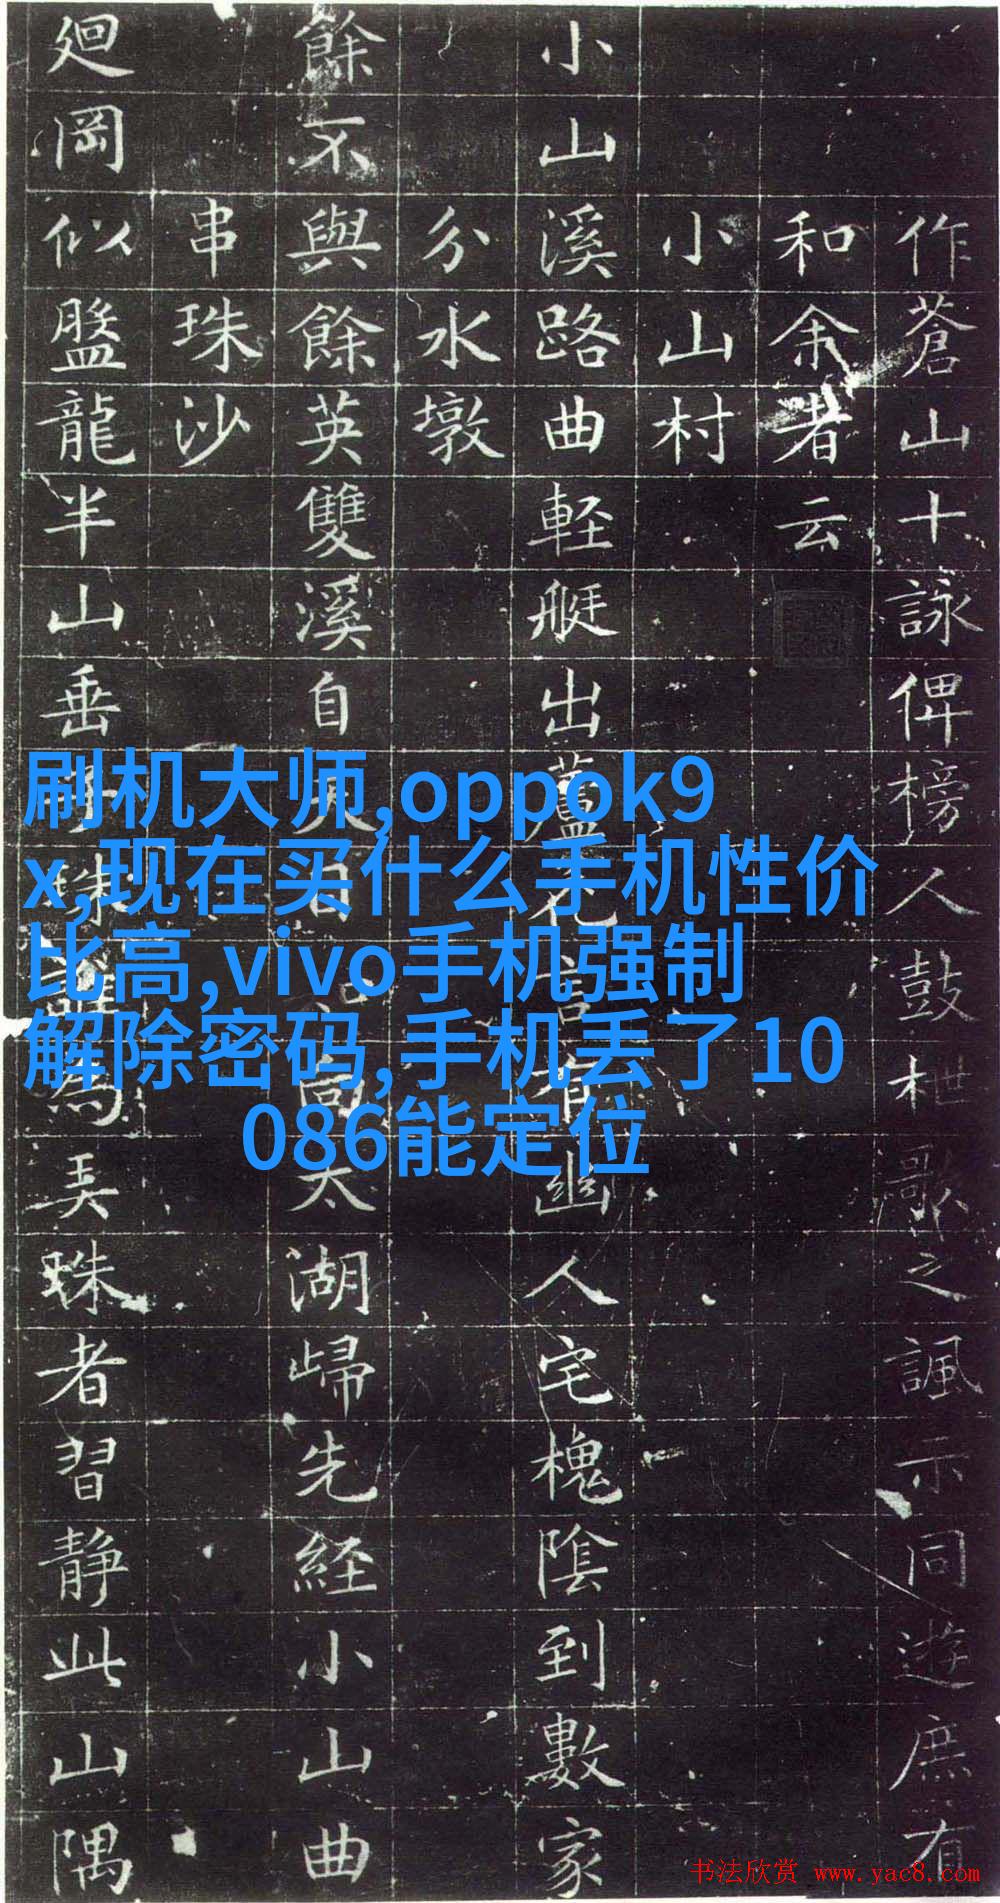 作蒼山十詠俾榜人鼓枻歌之諷示同遊庶有
和余者云
小山村
小山溪路曲軽艇出蘆花言有幽人宅槐陰到數家
分水墩
餘不與餘英雙溪自天目向太湖歸先経小山曲
串珠沙
廻岡似盤龍半山垂珠誰為弄珠者習静此山隅
刷机大师,oppok9
x,现在买什么手机性价
比高,vivo手机强制
解除密码,手机丢了10
086能定位
书法欣赏 www.yac8.com